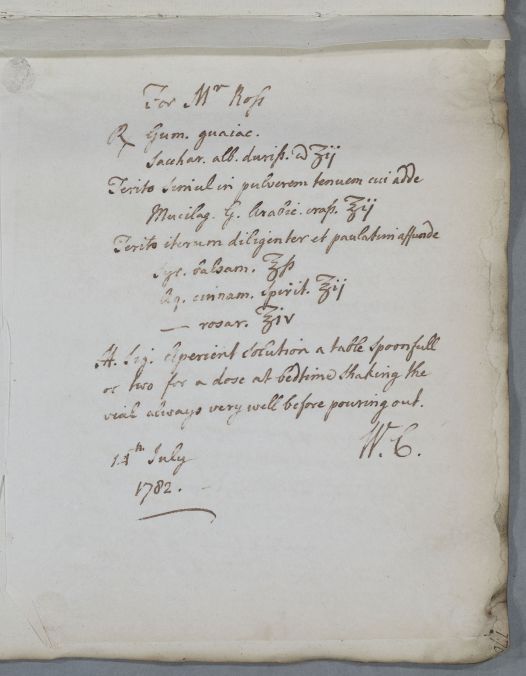 For Mr Ross
℞ Gum. guaiac.
Sacchar. alb. duriss. a ʒij
Terito simul in pulverem tenuem cui adde
Mucilag. G. Arabic. crass. ʒij
Terito iterum diligenter et paulatim affunde
Syr. balsam. ℥ss
Aq. cinnam. spirit. ℥ij
— rosar. ℥iv
Sig. Aperient Solution a table spoonfull
or two for a dose at bedtime shaking the
vial always very well before pouring out.
W. C.
14th July
1782.